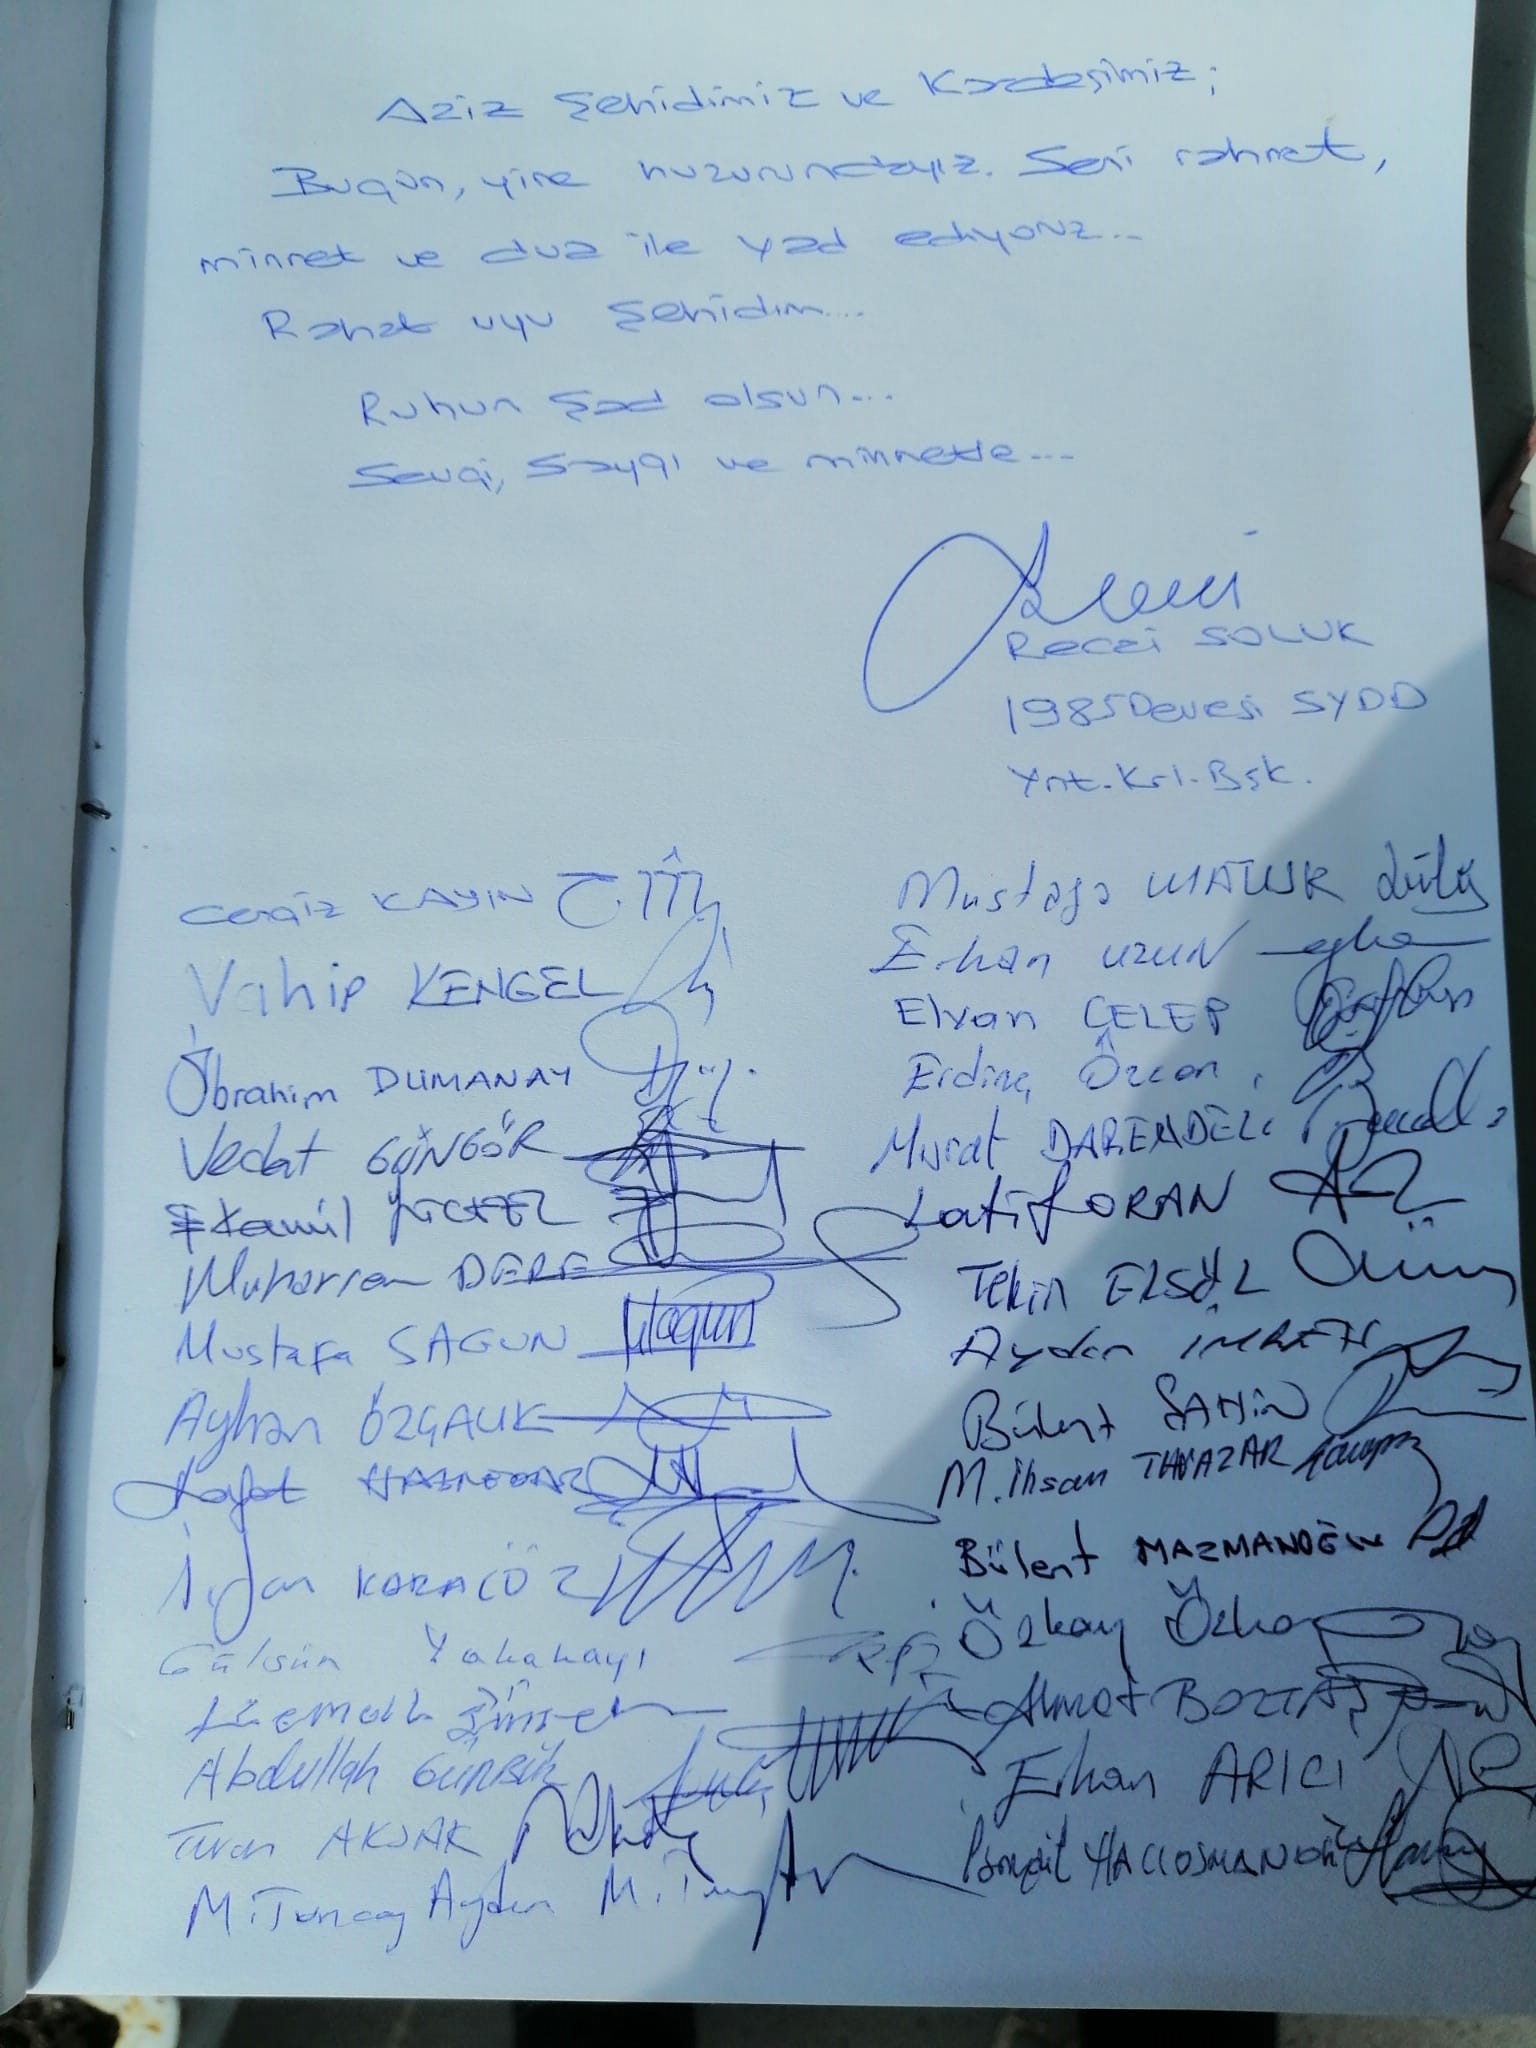 Aziz Şehidimiz ve Kardeşimiz;
Bugün, yine huzurundayız. Seni rahmet,
minnet ve dua ile yad ediyoruz...
Rahat uyu Şehidim...
Ruhun Şad olsun...
Sevgi, Saygı ve minnetle...
Recai SOLUK
1985 Devresi SYDD
Ynt. Krl. Bşk.
Cengiz KAYIN
Vahip KENGEL
İbrahim DUMANAY
Vedat GÜNGÖR
Kamil
Muharrem DERE
Mustafa SAGUN
Ayhan ÖZÇALIK
İrfan KARAGÖZ
Gülsün Yakakayı
Abdullah
Turan
M. Tuncay Aydın
Mustafa
Erhan UZUN
Elvan ÇELEP
Erdinç Özcan
Murat DARENDELİ
Latif ORAN
Tekin ELSÖZ
Aydın İMREN
Bülent ŞAHİN
M. İhsan
Bülent MAZMANOĞLU
Özkay
Ahmet BOZTAŞ
Erhan ARICI
İsmail HACIOSMANOĞLU